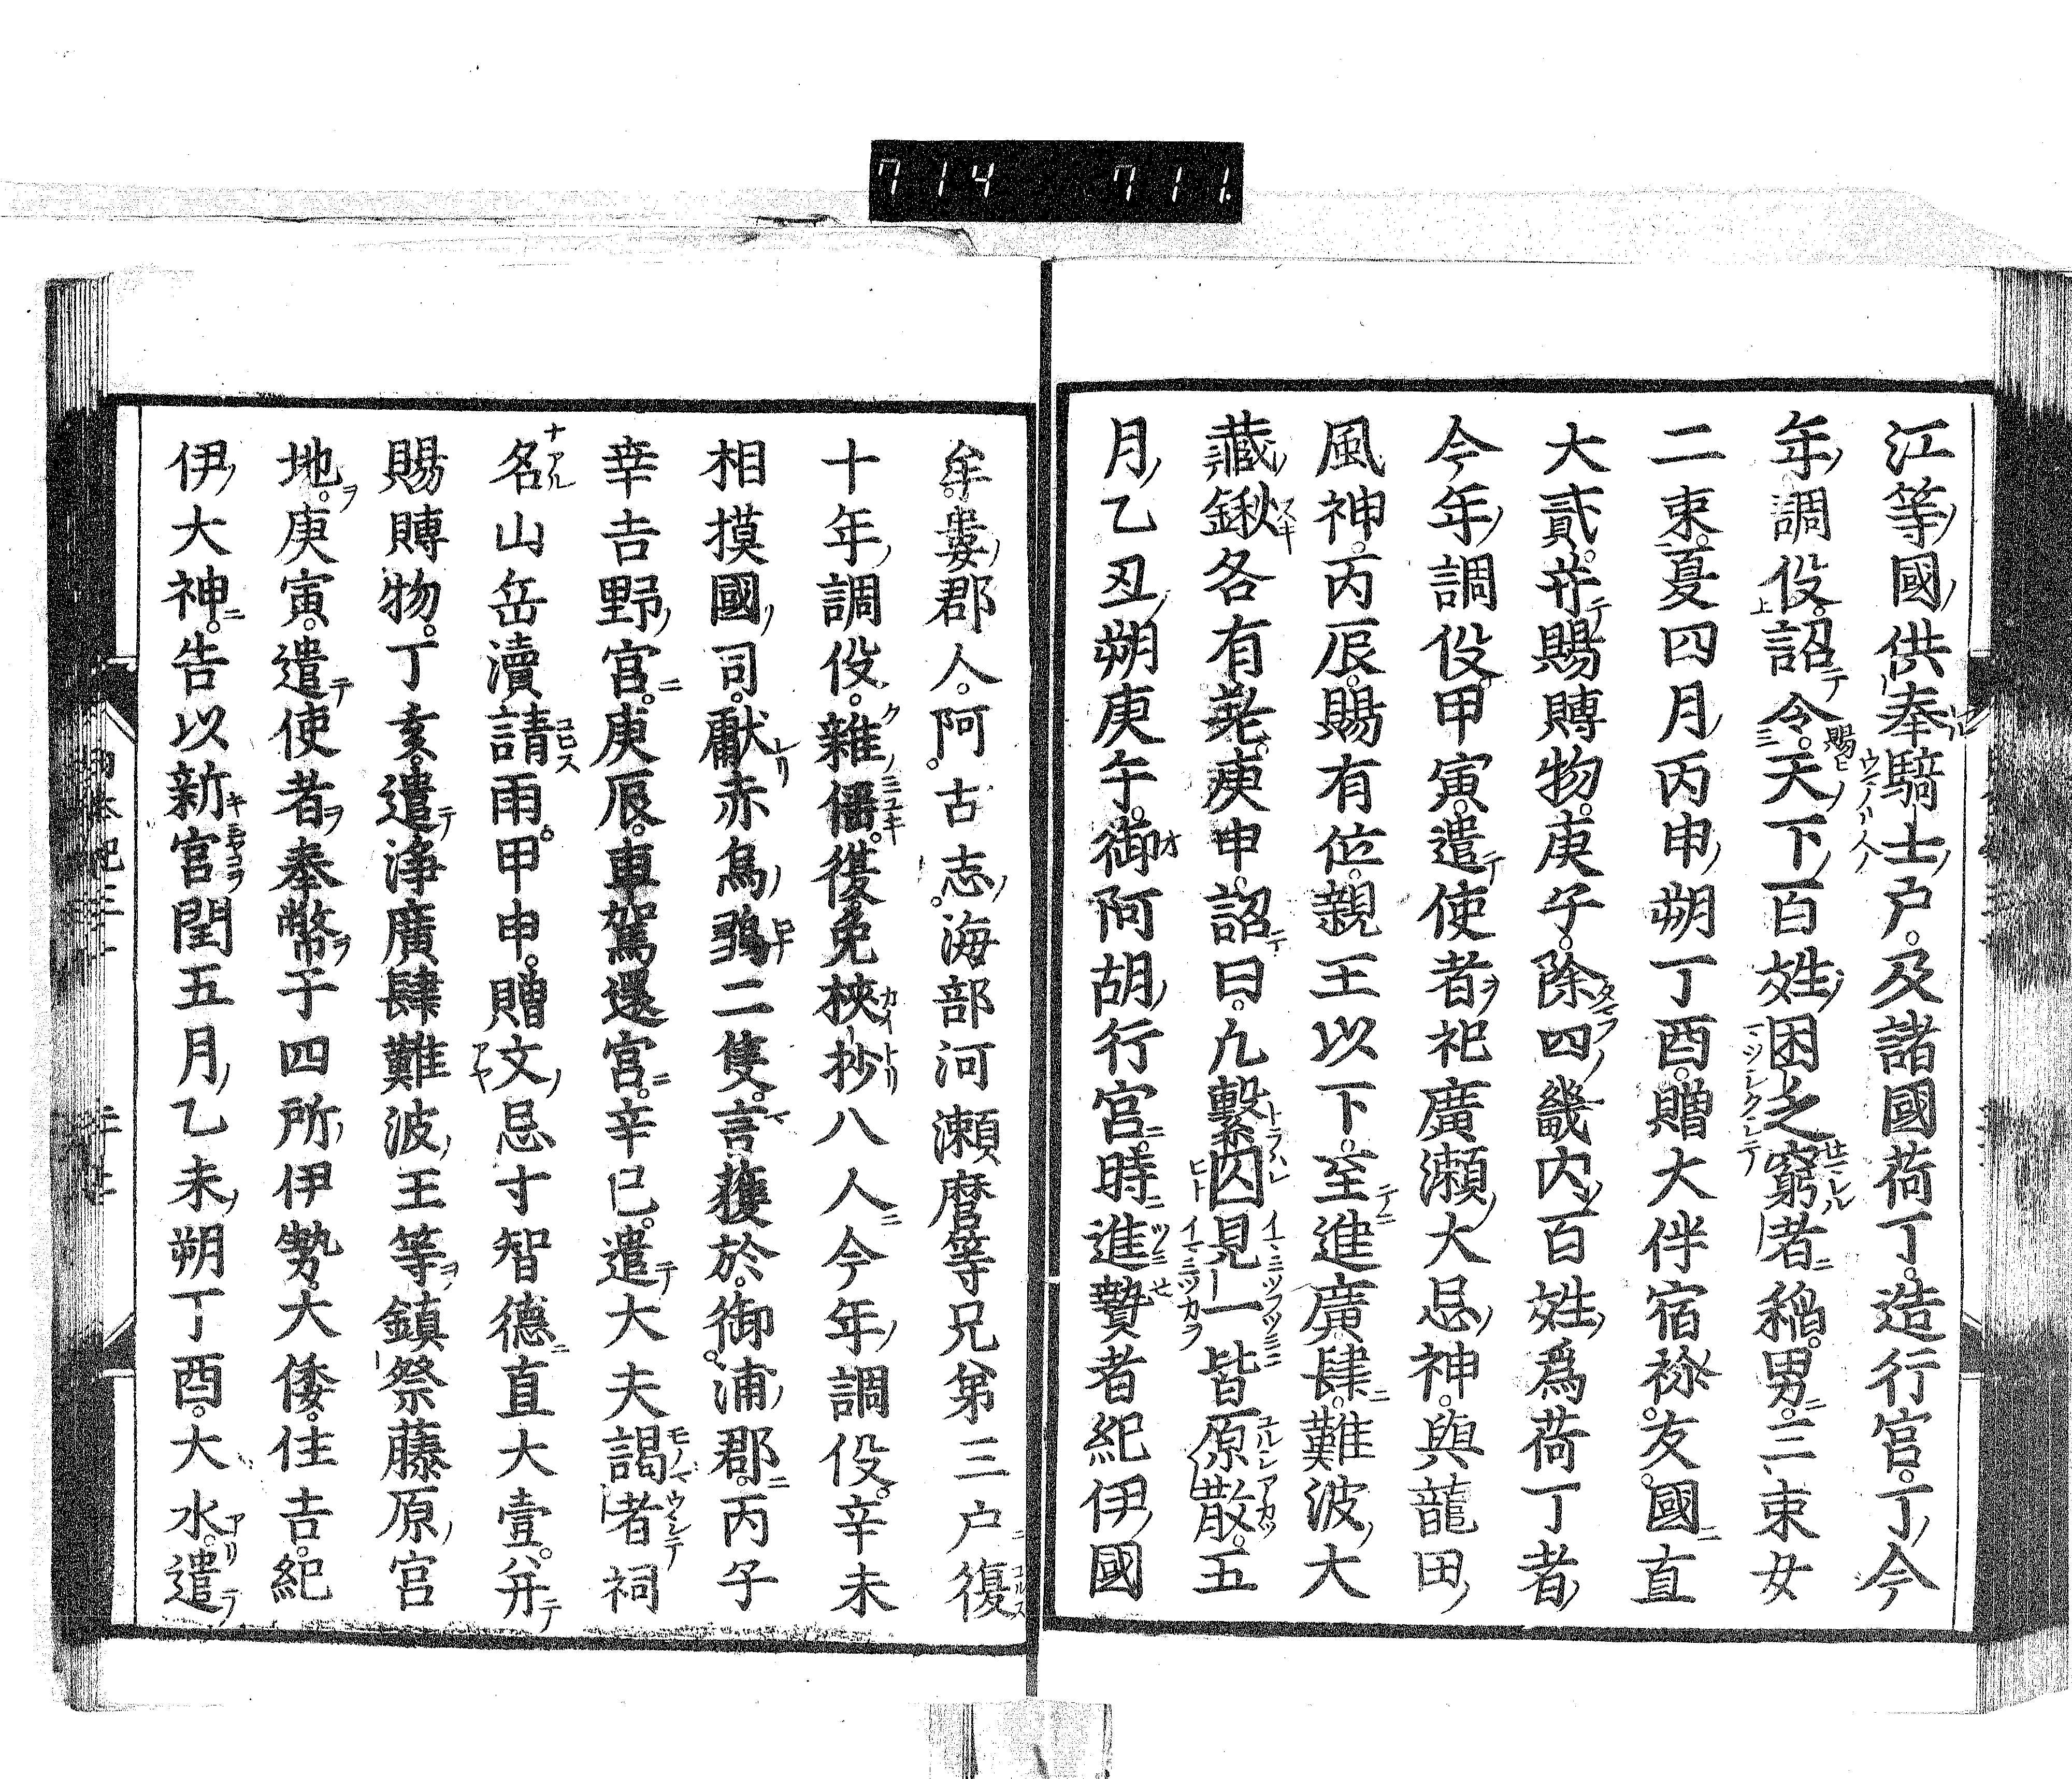 714 711.
江等國供奉騎士户及諸國荷丁造行宮丁今
年調役詔令天下百姓困乏窮者稲男三束女
二束夏四月丙申朔丁酉贈大伴宿祢友國直
大貳并賜賻物庚子除四畿内百姓爲荷丁者
今年調役甲寅遣使者祀廣瀬大忌神與龍田
風神丙辰賜有位親王以下至進廣肆難波大
藏鍬各有差庚申詔曰凢繫囚見一皆原散五
月乙丑朔庚午御阿胡行宮時進贄者紀伊國
牟婁郡人阿古志海部河瀬麿等兄弟三户復
十年調役雜徭復免挾抄八人今年調役辛未
相摸國司獻赤烏鵶二隻言獲於御浦郡丙子
幸吉野宮庚辰車駕還宮辛巳遣大夫謁者祠
名山岳瀆請雨甲申贈文忌寸智德直大壹并
賜賻物丁亥遣淨廣肆難波王等鎮祭藤原宮
地庚寅遣使者奉幣于四所伊勢大倭住吉紀
伊大神告以新宮閏五月乙未朔丁酉大水遣